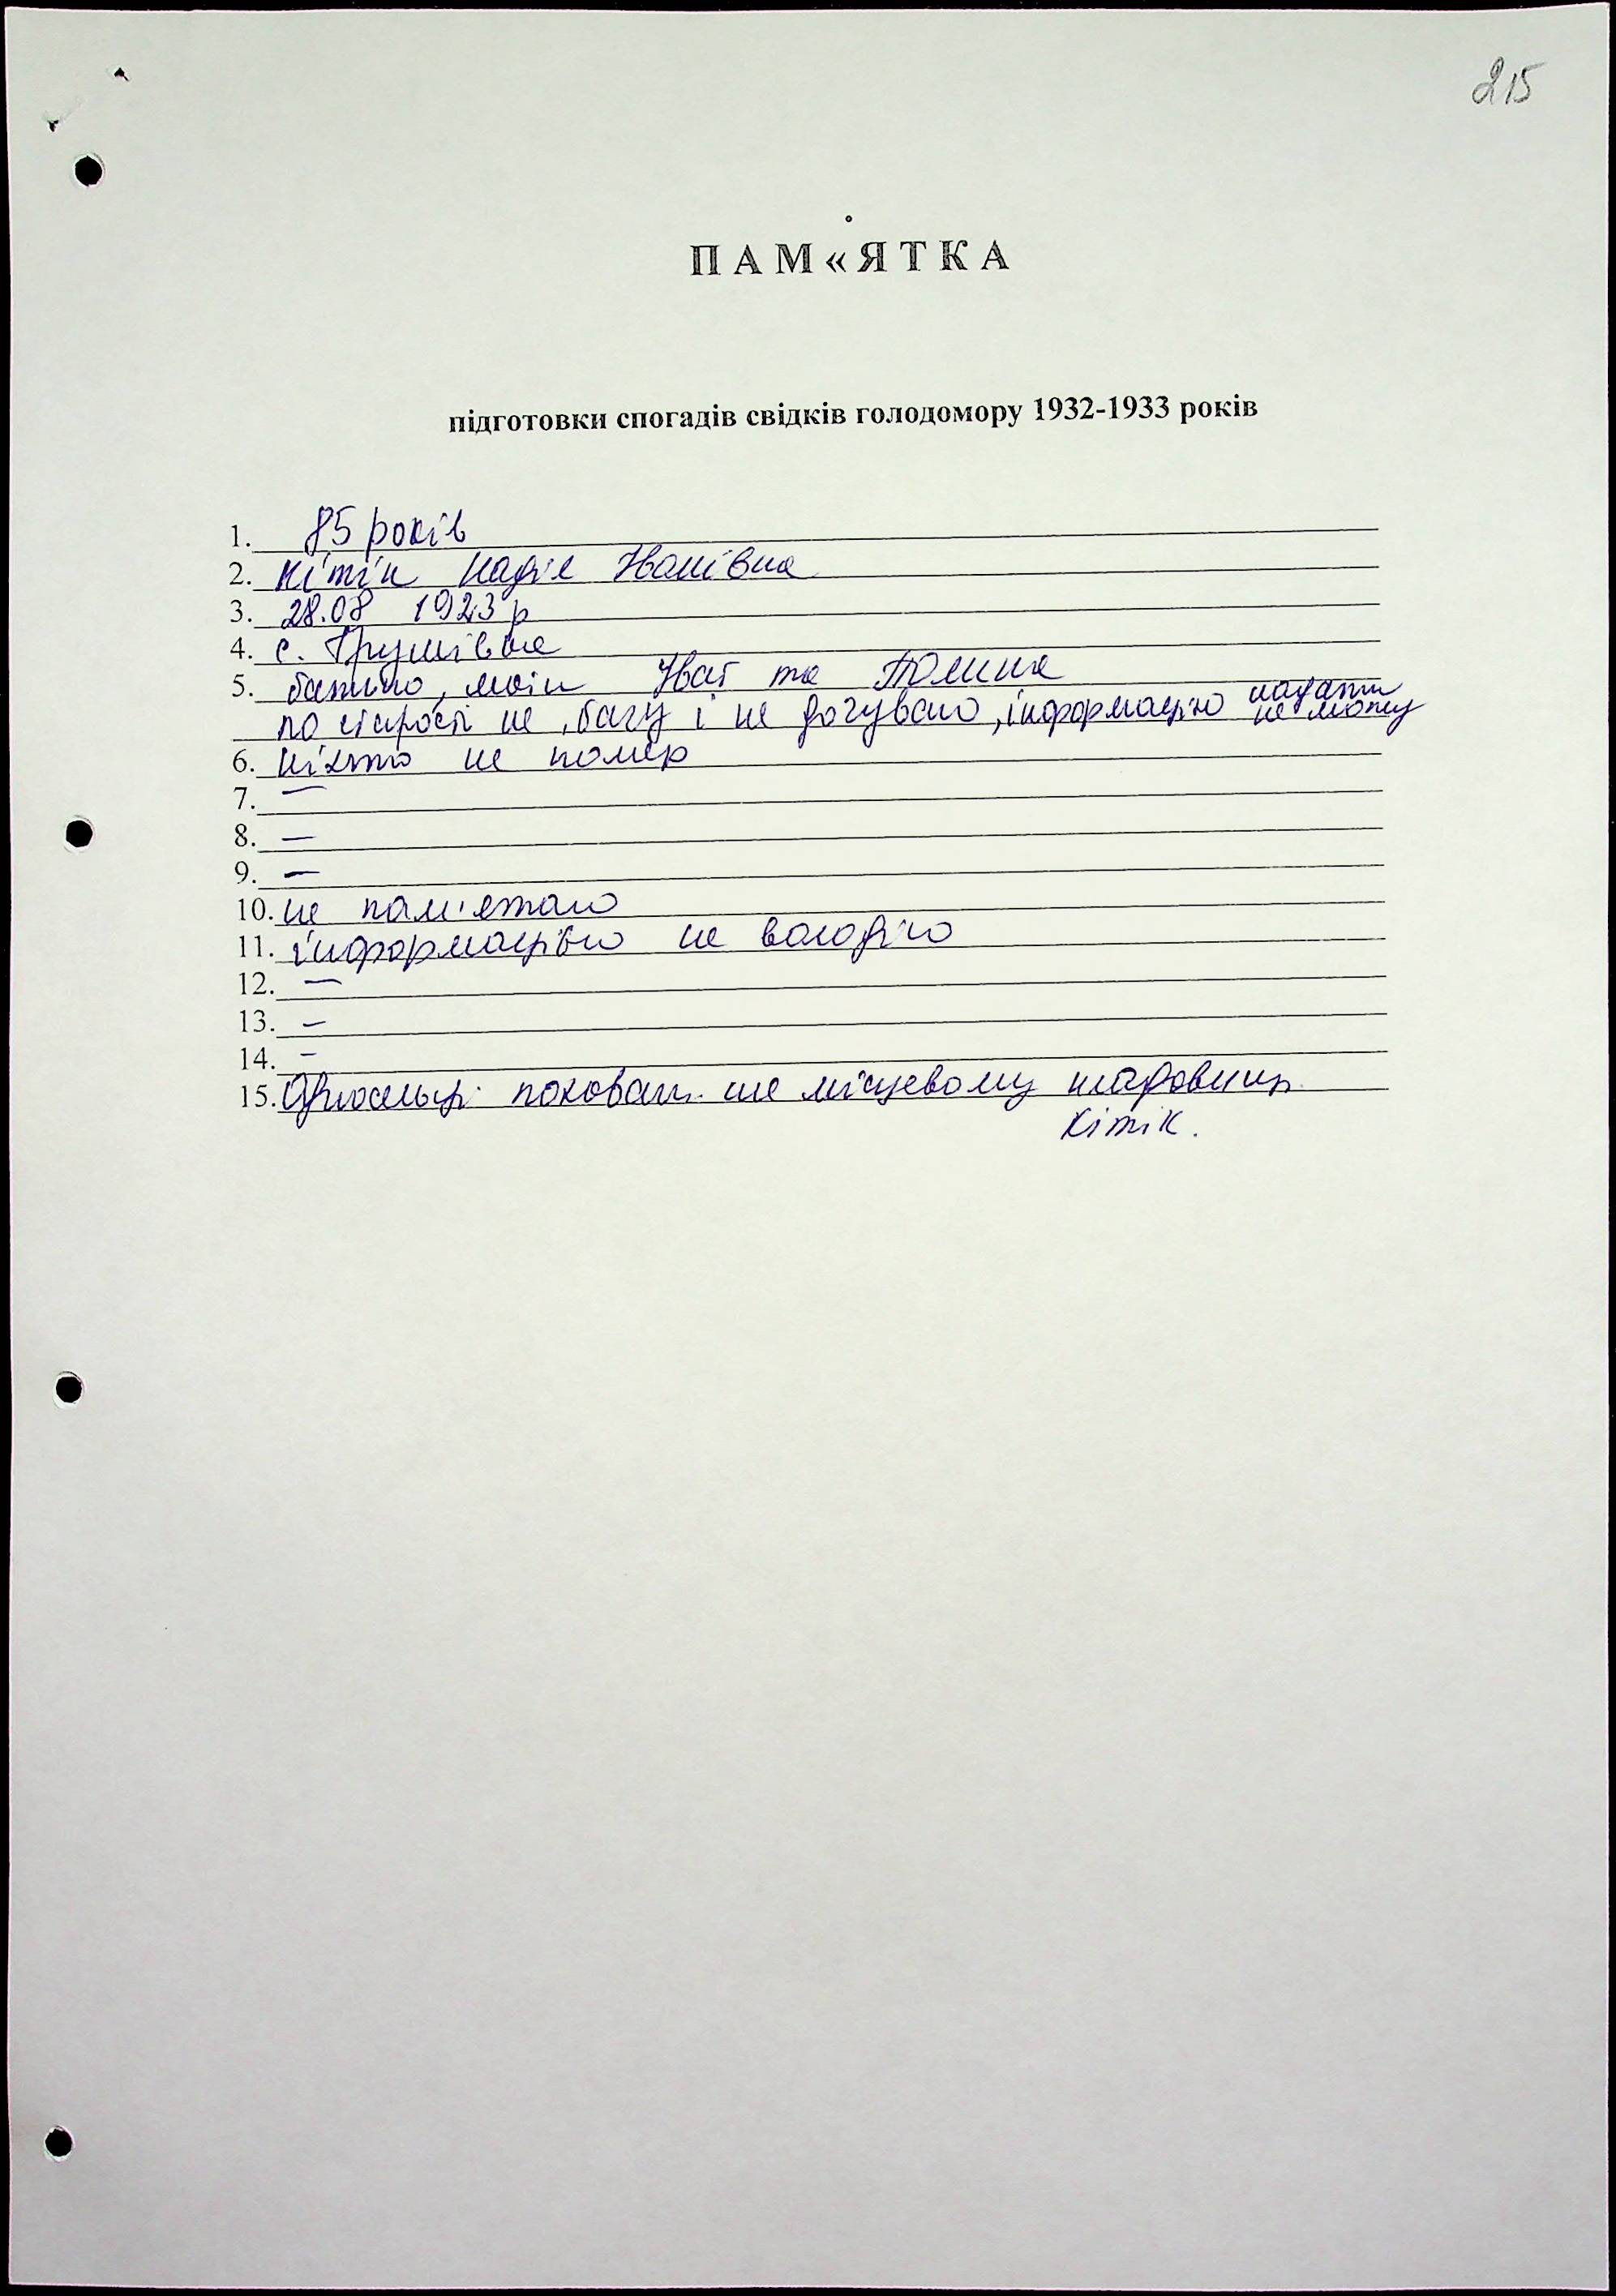 215
ПАМ«ЯТКА
підготовки спогадів свідків голодомору 1932-1933 років
1. 85 років
2. Кітік Надія Іванівна
3. 28.08 1923 р
4. с. Грушівка
5. батько, мати Іван та
по старості не бачу і не дочуваю, інформацію надати не можу
6. ніхто не помер
7. –
8. –
9. –
10. не пам'ятаю
11. інформацією не володію
12. –
13. –
14. –
15. Односельці поховані на місцевому
Кітік.